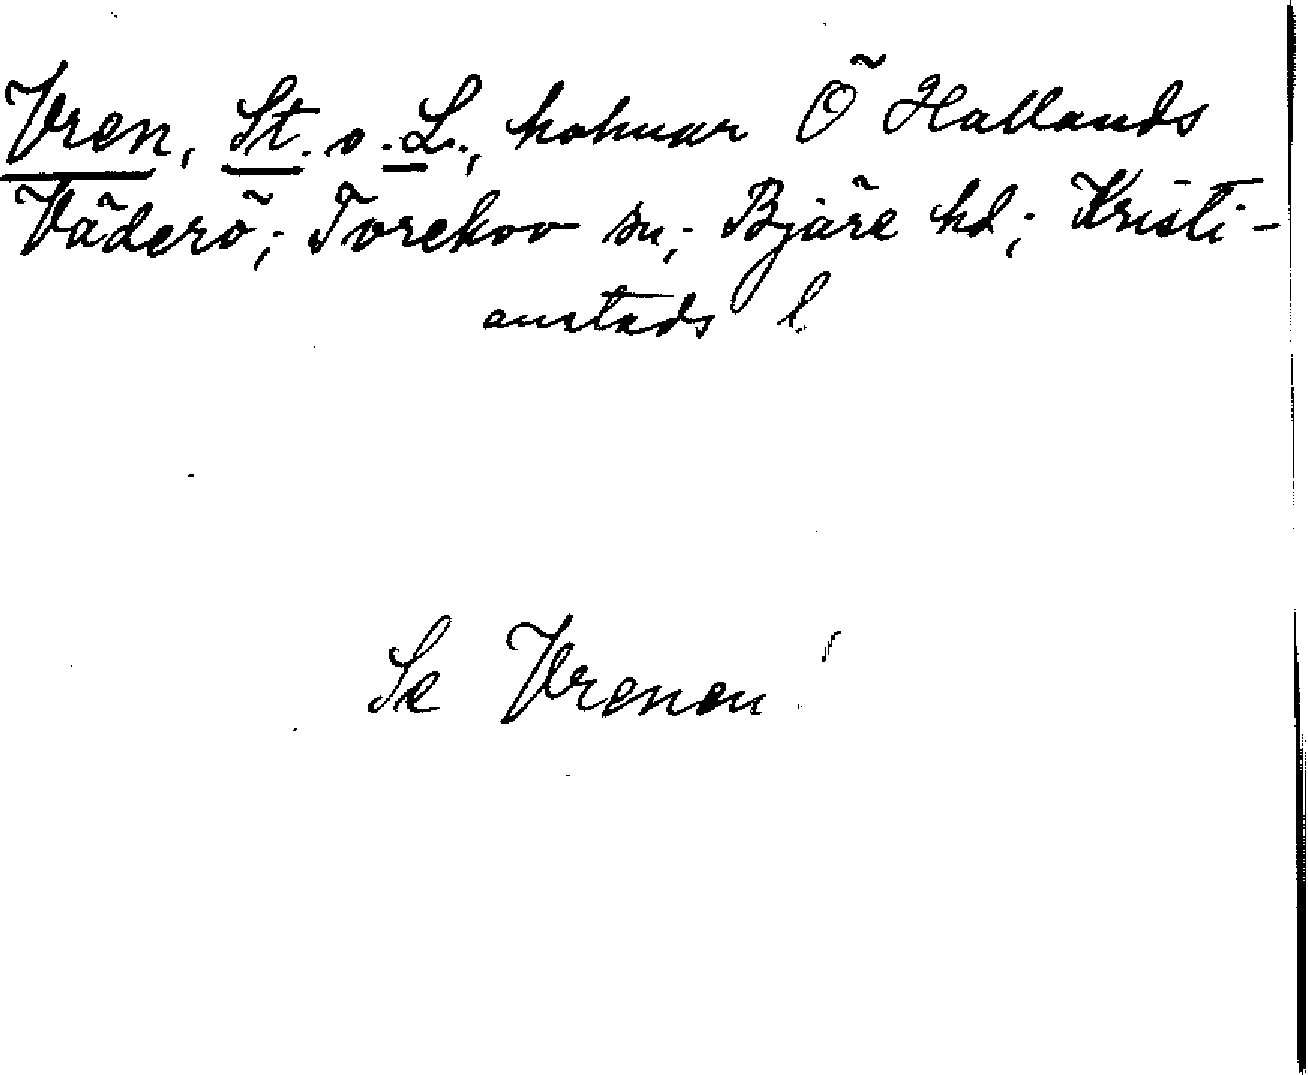 Vren, St. o. L., holmar Ö Hallands
Väderö; Torekov sn; Bjäre hd; Kristi-
anstads l.
Se Vrenen!